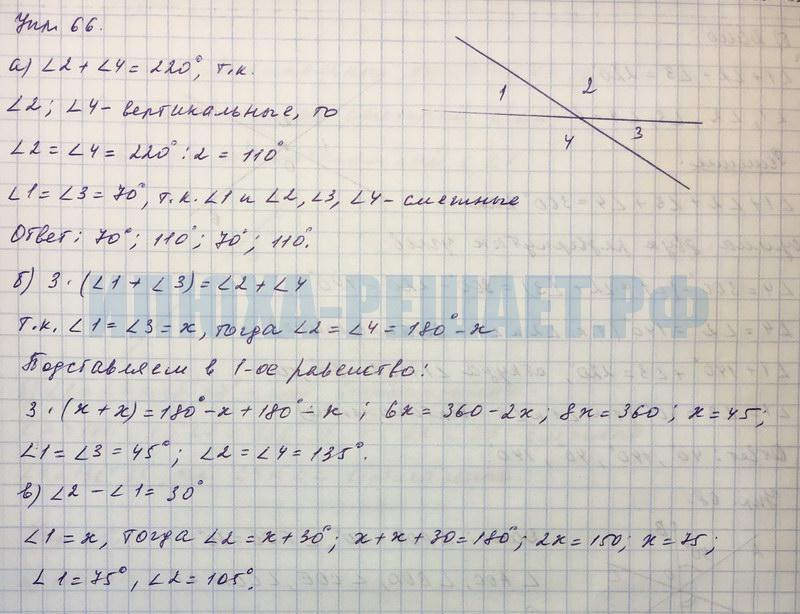 Упр 66.
1 2
4 3
а) ∠2 + ∠4 = 220°, т.к.
∠2; ∠4 - вертикальные, то
∠2 = ∠4 = 220° : 2 = 110°
∠1 = ∠3 = 70°, т.к. ∠1 и ∠2, ∠3, ∠4 - смежные
Ответ: 70°; 110°; 70°; 110°.
б) 3 · (∠1 + ∠3) = ∠2 + ∠4
ИЛЮХА-РЕШАЕТ.РФ
т.к. ∠1 = ∠3 = x, тогда ∠2 = ∠4 = 180° - x
Подставляем в 1-ое равенство:
3 · (x + x) = 180° - x + 180° - x ; 6x = 360 - 2x ; 8x = 360 ; x = 45 ;
∠1 = ∠3 = 45° ; ∠2 = ∠4 = 135°.
в) ∠2 - ∠1 = 30°
∠1 = x, тогда ∠2 = x + 30° ; x + x + 30 = 180° ; 2x = 150 ; x = 75 ;
∠1 = 75°, ∠2 = 105°.